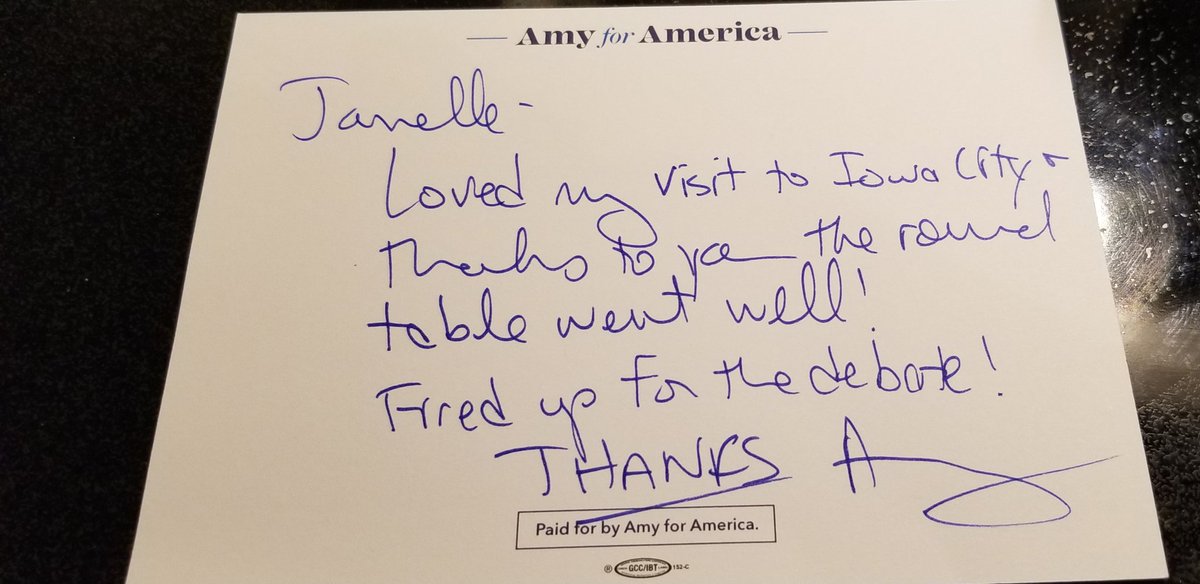 Amy for America
Janelle-
Loved my visit to Iowa City +
thanks to you the round
table went well!
Fired up for the debate!
THANKS Amy
Paid for by Amy for America.
® GCC/IBT 152-C